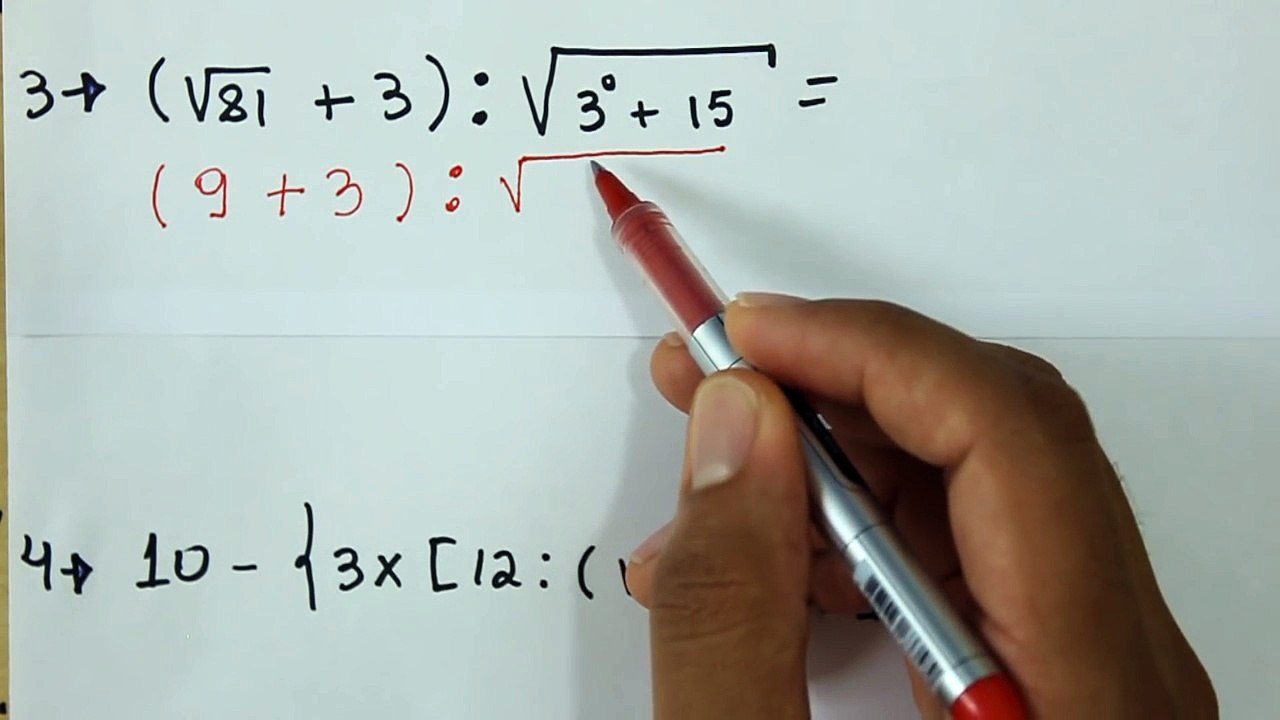 3→ (√81 + 3) : √(3⁰ + 15) =
(9 + 3) : √
4→ 10 - {3x [12 : (